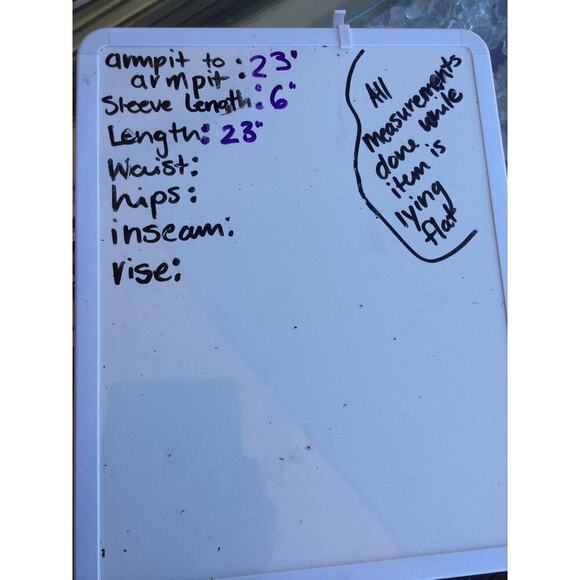 armpit to
armpit: 23"
Sleeve Length: 6"
Length: 23"
Waist:
hips:
inseam:
rise:
All
measurements
done while
item is
lying
flat